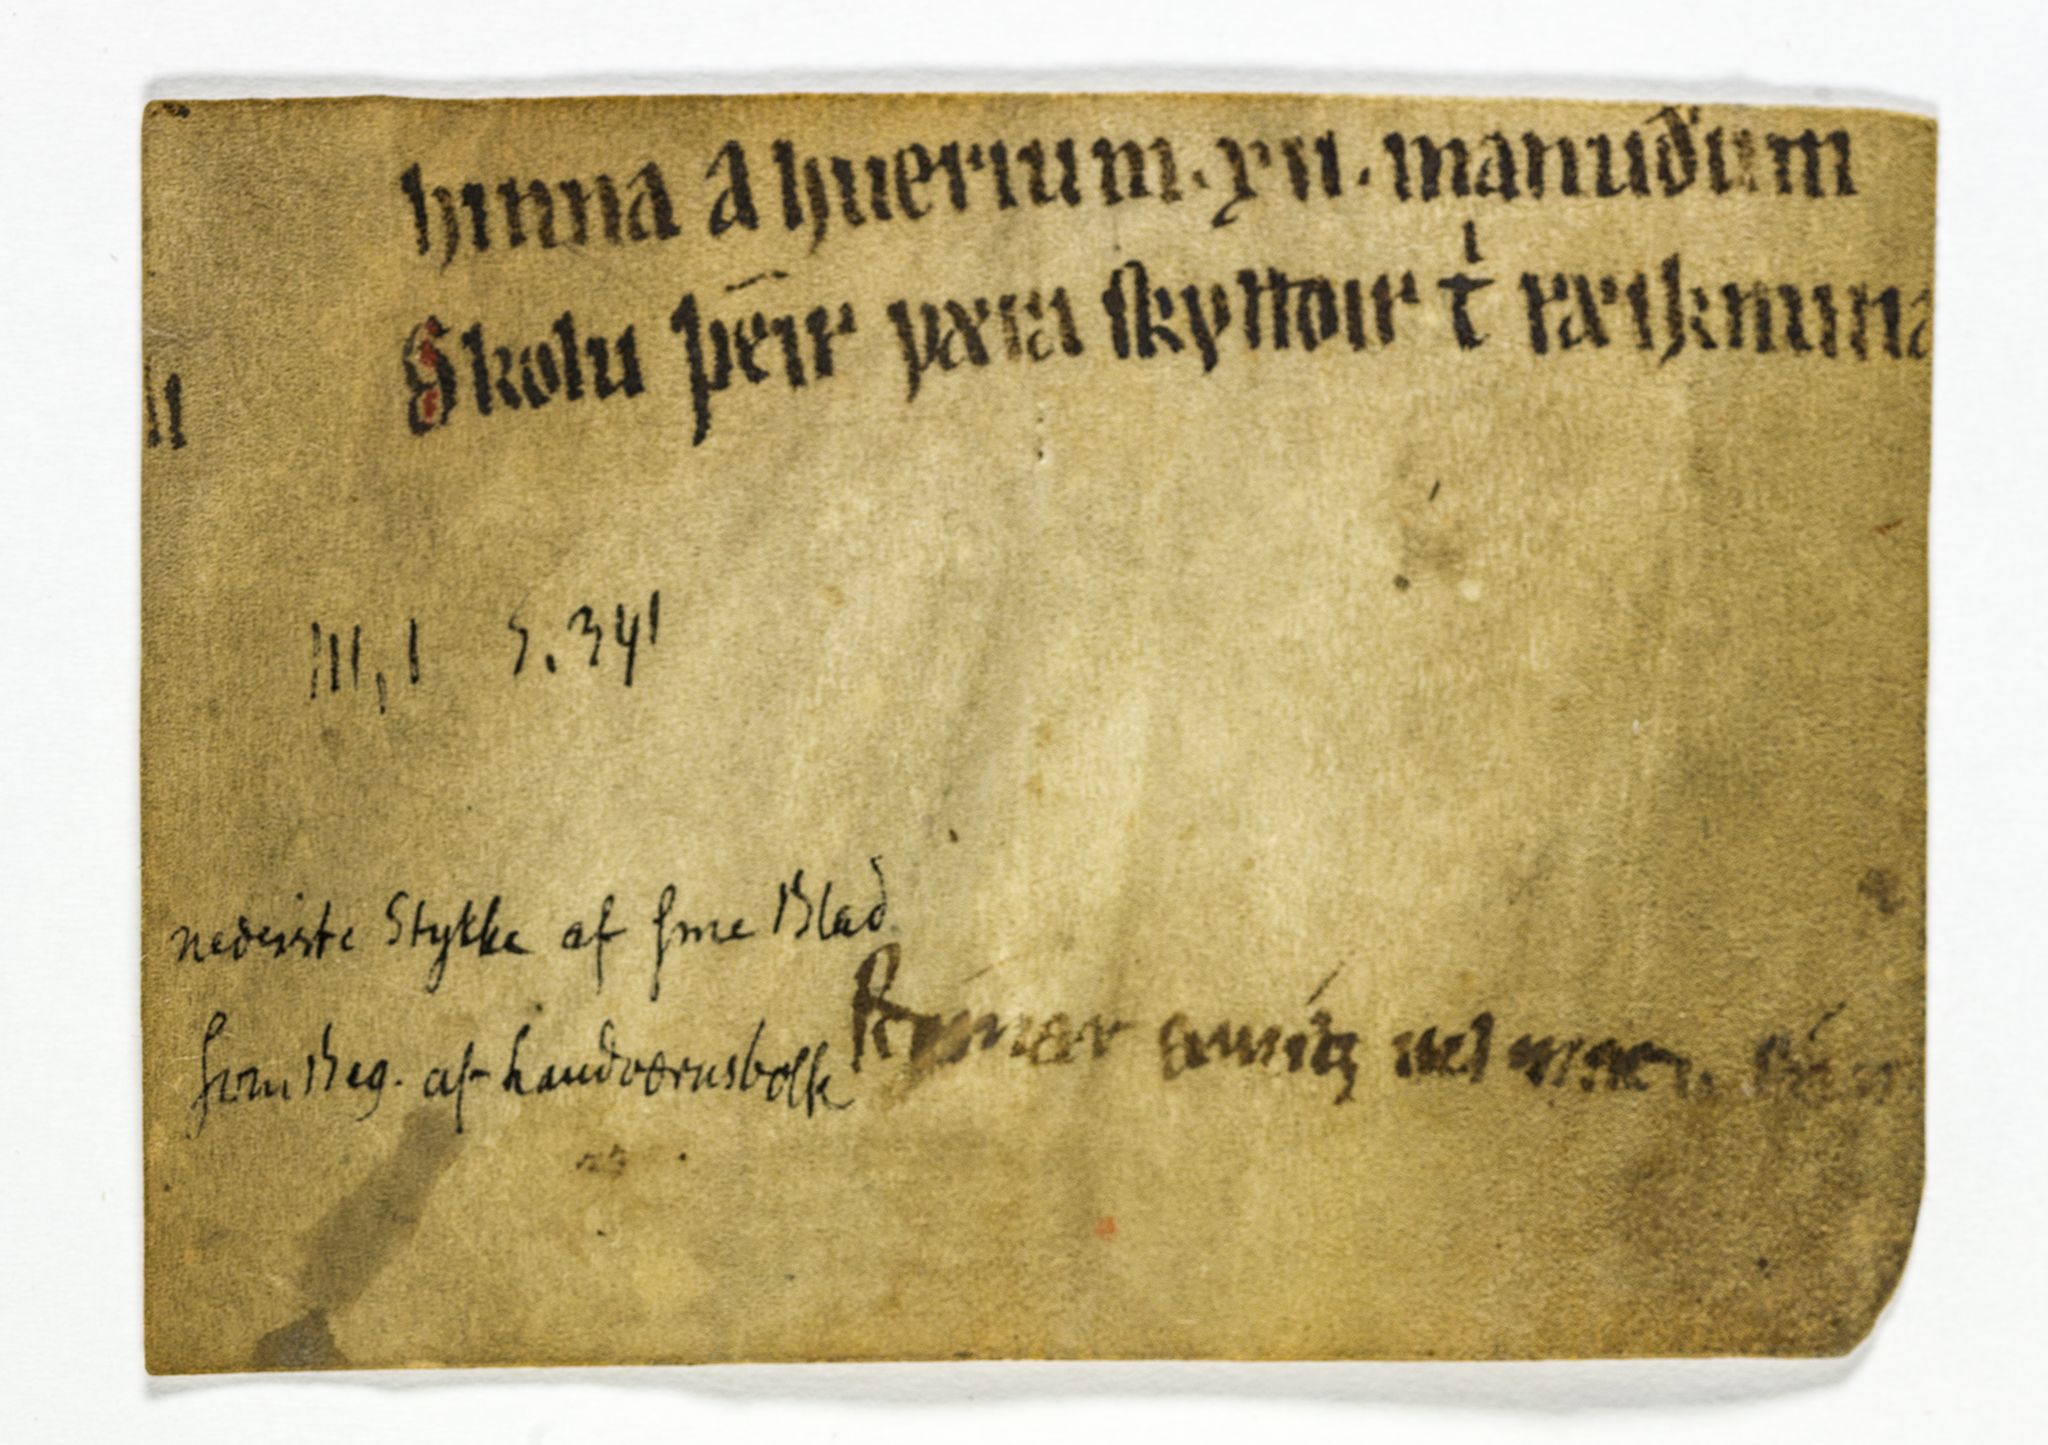 hinna a huerium · xii · manuðum
lt
Skolu þeir væra skylldir t̍ ræiknuna
III, 1 S. 341
nederste Stykke af sme Blad
som Beg. af Landværnsbolk